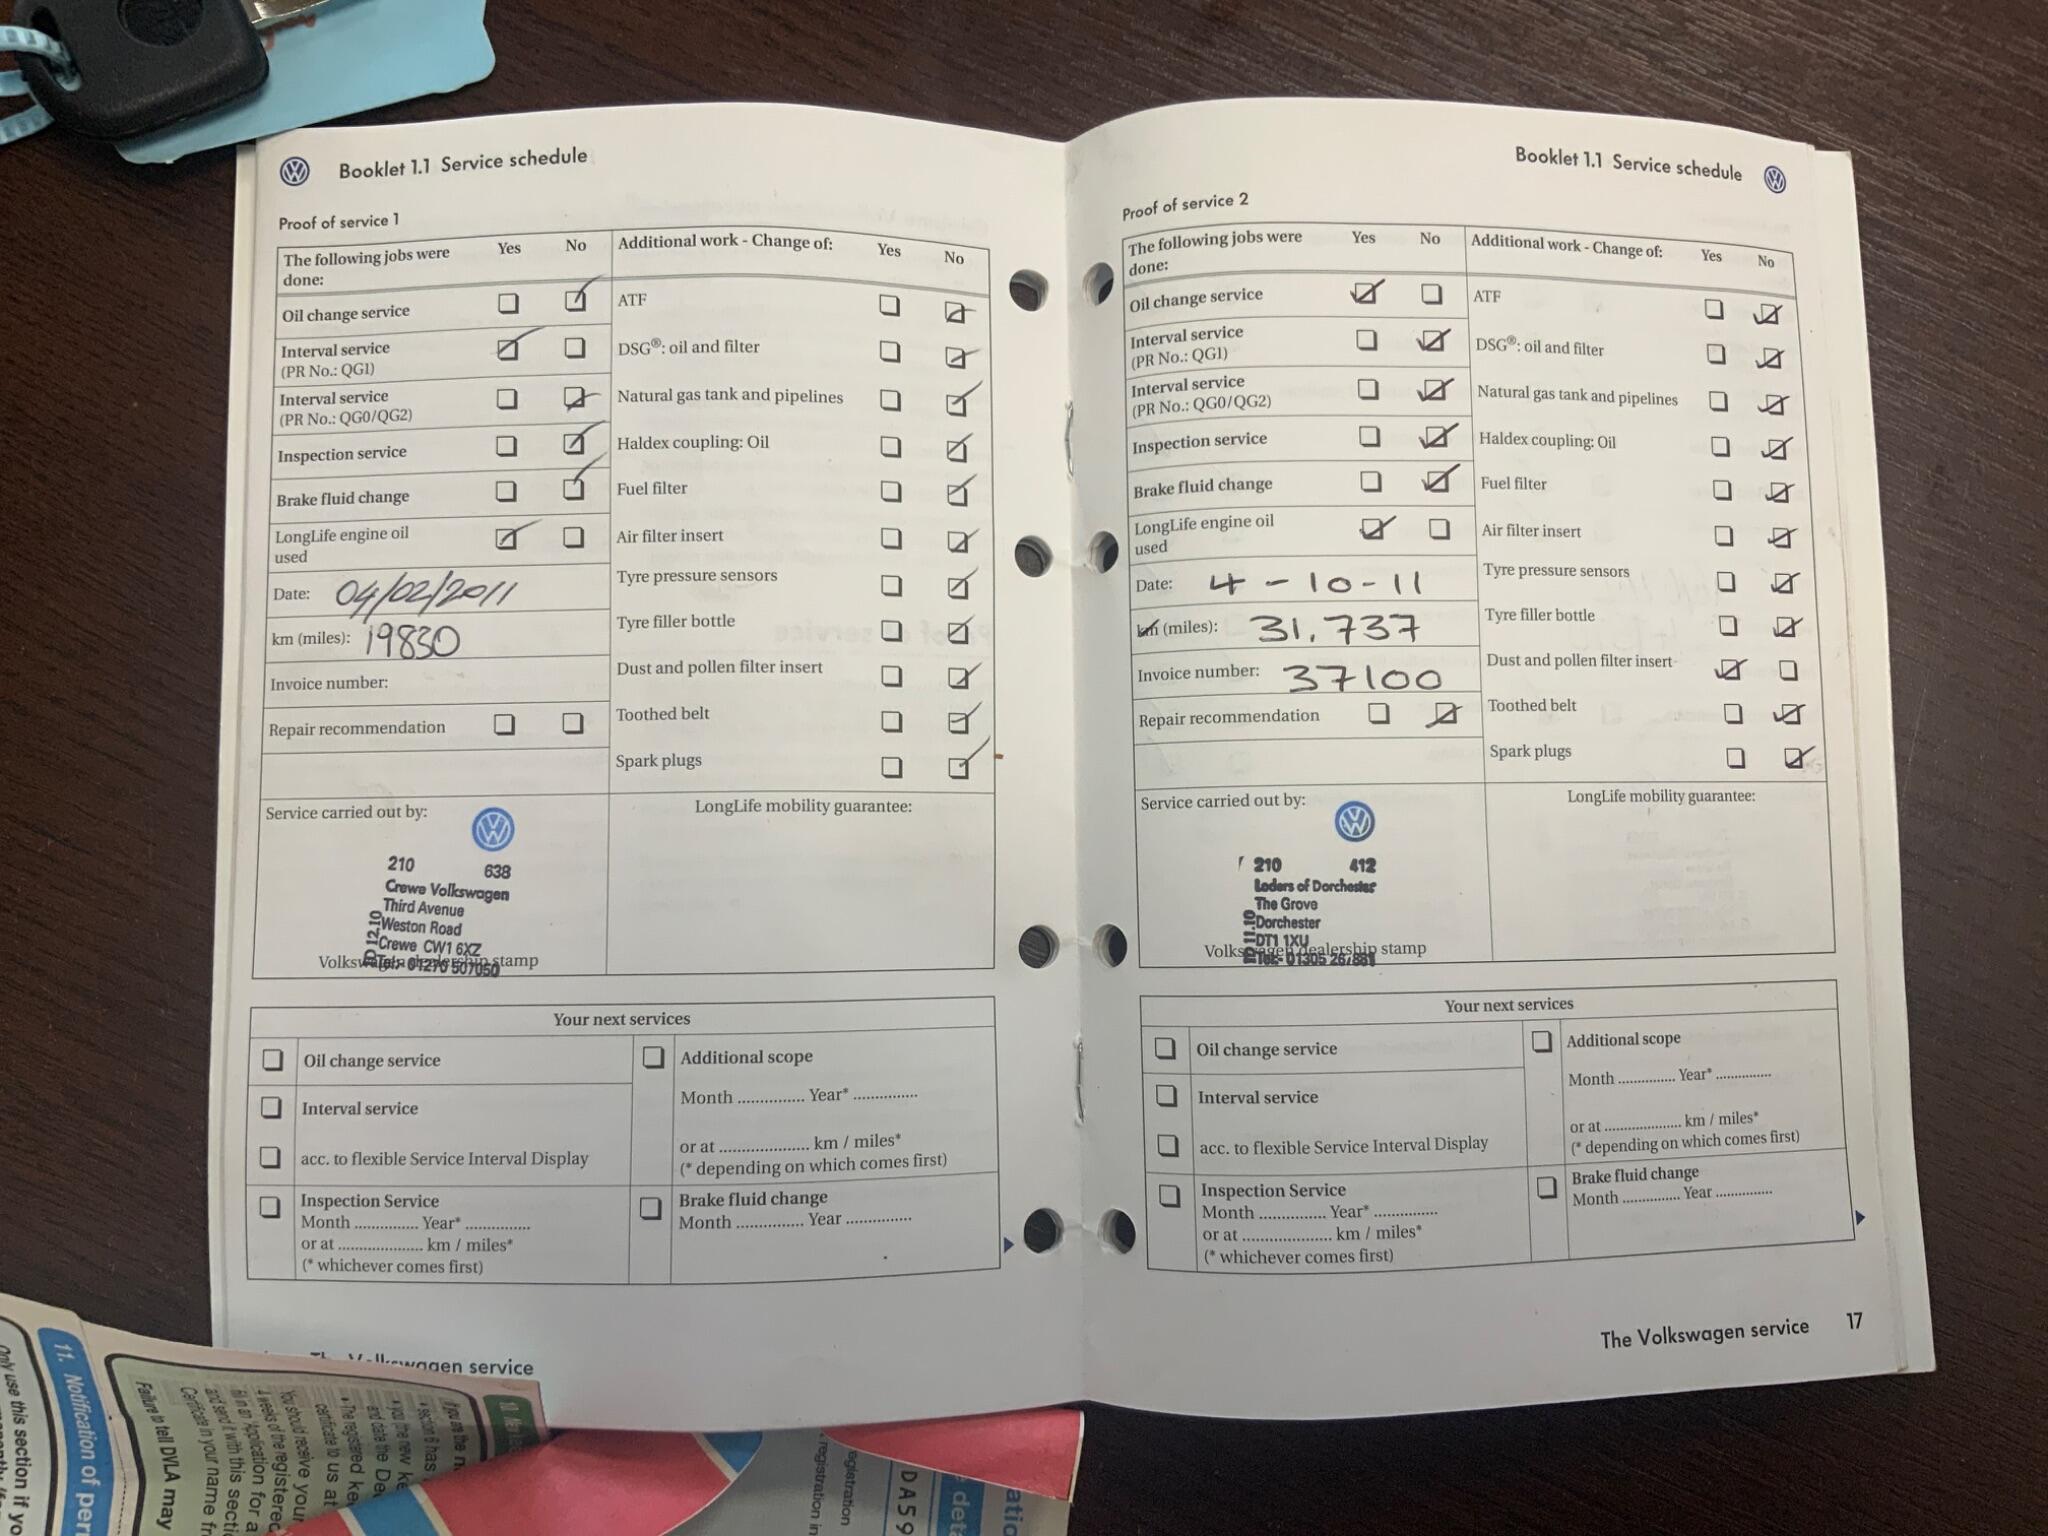 Booklet 1.1 Service schedule
Proof of service 1
The following jobs were done: Yes No
Additional work - Change of: Yes No
Oil change service
ATF
Interval service
(PR No.: QG1)
DSG®: oil and filter
Interval service
(PR No.: QG0/QG2)
Natural gas tank and pipelines
Inspection service
Haldex coupling: Oil
Brake fluid change
Fuel filter
LongLife engine oil
used
Air filter insert
Date: 04/02/2011
Tyre pressure sensors
km (miles): 19830
Tyre filler bottle
Invoice number:
Dust and pollen filter insert
Repair recommendation
Toothed belt
Spark plugs
Service carried out by:
LongLife mobility guarantee:
210 638
Crewe Volkswagen
Third Avenue
Weston Road
Crewe CW1 6XZ
Tel:- 01270 507050
D 12.10
Volkswagen dealership stamp
Your next services
Oil change service
Additional scope
Interval service
Month ............... Year* ..............
acc. to flexible Service Interval Display
or at .................... km / miles*
(* depending on which comes first)
Inspection Service
Month .............. Year* ..............
or at ................... km / miles*
(* whichever comes first)
Brake fluid change
Month ............... Year ..............
Volkswagen service
Booklet 1.1 Service schedule
Proof of service 2
The following jobs were done: Yes No
Additional work - Change of: Yes No
Oil change service
ATF
Interval service
(PR No.: QG1)
DSG®: oil and filter
Interval service
(PR No.: QG0/QG2)
Natural gas tank and pipelines
Inspection service
Haldex coupling: Oil
Brake fluid change
Fuel filter
LongLife engine oil
used
Air filter insert
Date: 4 - 10 - 11
Tyre pressure sensors
km (miles): 31.737
Tyre filler bottle
Invoice number: 37100
Dust and pollen filter insert
Repair recommendation
Toothed belt
Spark plugs
Service carried out by:
LongLife mobility guarantee:
210 412
Loders of Dorchester
The Grove
Dorchester
DT1 1XU
Tel:- 01305 267881
11.10
Volkswagen dealership stamp
Your next services
Oil change service
Additional scope
Interval service
Month .............. Year* ..............
acc. to flexible Service Interval Display
or at .................... km / miles*
(* depending on which comes first)
Inspection Service
Month .............. Year* ..............
or at .................... km / miles*
(* whichever comes first)
Brake fluid change
Month .............. Year ..............
The Volkswagen service 17
11. Notification of per
Only use this section if yo
Failure to tell DVLA may
You should receive your
4 weeks of the registered
fill in an application for a
and send it with this secti
Certificate in your name fr
section 6 has
the new ke
and date the De
The registered ke
certificate to us at
egistration
registration in
DA59
e deta